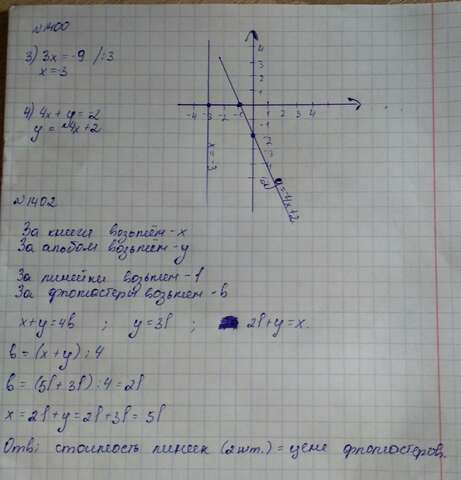 №1400
3) 3x = -9 /:3
x = -3
4) 4x + y = -2
y = -4x + 2
4
3
2
1
-4 -3 -2 -1 1 2 3 4
-1
x = -3
y = -4x+2
№1402
За книги возьмём - x
За альбом возьмём - y
За линейки возьмем - l
За фломастеры возьмем - в
x + y = 4в ; y = 3l ; 2l + y = x.
в = (x + y) : 4
в = (5l + 3l) : 4 = 2l
x = 2l + y = 2l + 3l = 5l
Отв: стоимость линеек (2шт.) = цене фломастеров.